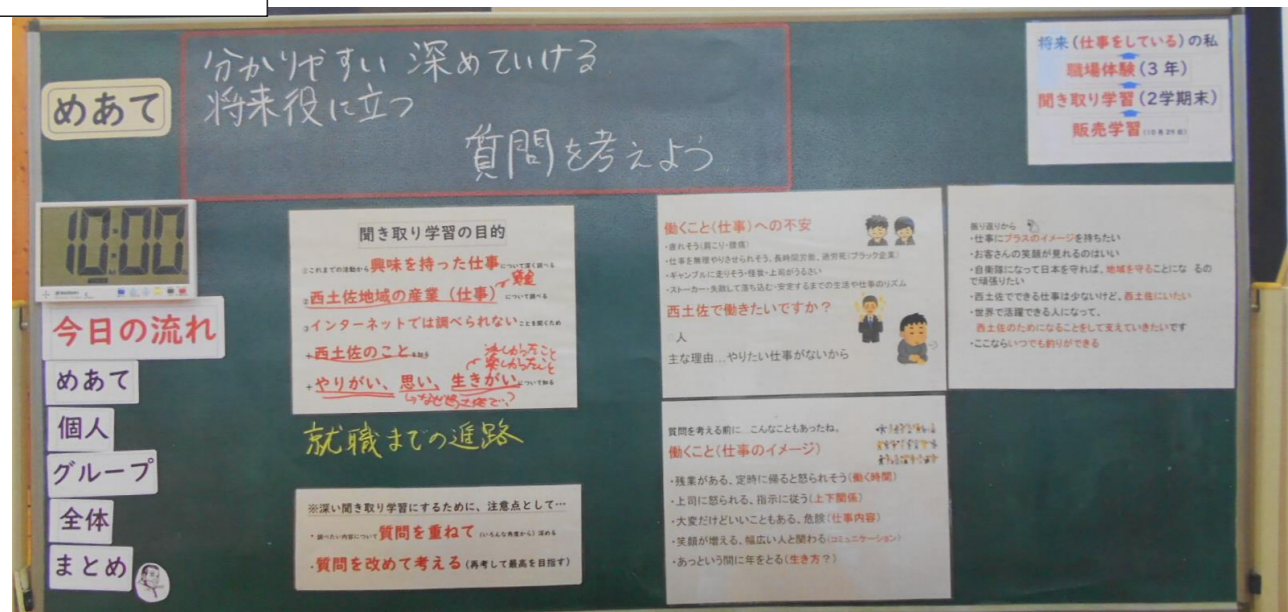 めあて
分かりやすい 深めていける
将来役に立つ
質問を考えよう
将来(仕事をしている)の私
職場体験(3年)
聞き取り学習(2学期末)
販売学習
10:00
今日の流れ
めあて
個人
グループ
全体
まとめ
聞き取り学習の目的
①これまでの活動から興味を持った仕事について深く調べる
②西土佐地域の産業(仕事)について調べる
③インターネットでは調べられないことを聞くため
+西土佐のことを知る
+やりがい、思い、生きがいについて知る
楽しかったこと
就職までの進路
※深い聞き取り学習にするために、注意点として…
・調べたい内容について質問を重ねて(いろんな角度から)深める
・質問を改めて考える(再考して最高を目指す)
働くこと(仕事)への不安
・疲れそう(肩こり・腰痛)
・仕事を無理やりさせられそう、長時間労働、過労死(ブラック企業)
・ギャンブルに走りそう・怪我・上司がうるさい
・ストーカー・失敗して落ち込む・安定するまでの生活や仕事のリズム
西土佐で働きたいですか?
○人
主な理由…やりたい仕事がないから
質問を考える前に…こんなこともあったね。
働くこと(仕事のイメージ)
・残業がある、定時に帰ると怒られそう(働く時間)
・上司に怒られる、指示に従う(上下関係)
・大変だけどいいこともある、危険(仕事内容)
・笑顔が増える、幅広い人と関わる(コミュニケーション)
・あっという間に年をとる(生き方?)
振り返りから
・仕事にプラスのイメージを持ちたい
・お客さんの笑顔が見れるのはいい
・自衛隊になって日本を守れば、地域を守ることになるの
で頑張りたい
・西土佐でできる仕事は少ないけど、西土佐にいたい
・世界で活躍できる人になって、
西土佐のためになることをして支えていきたいです
・ここならいつでも釣りができる